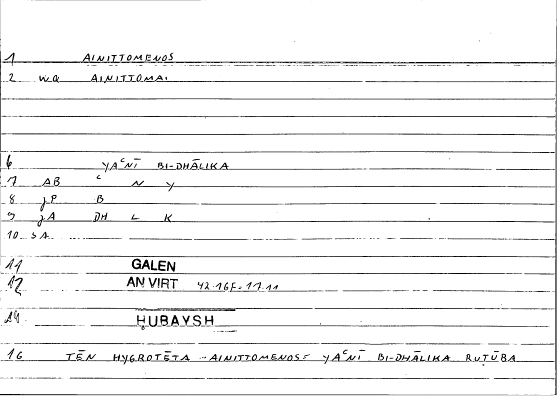 1 AINITTOMENOS
2 wa AINITTOMAI
6 YAʿNĪ BI-DHĀLIKA
7 AB ʿ N Y
8 jP B
9 jA DH L K
10 SA
11 GALEN
12 AN VIRT 42.16f-17.11
14 ḤUBAYSH
16 TĒN HYGROTĒTA -AINITTOMENOS= YAʿNĪ BI-DHĀLIKA RUṬŪBA